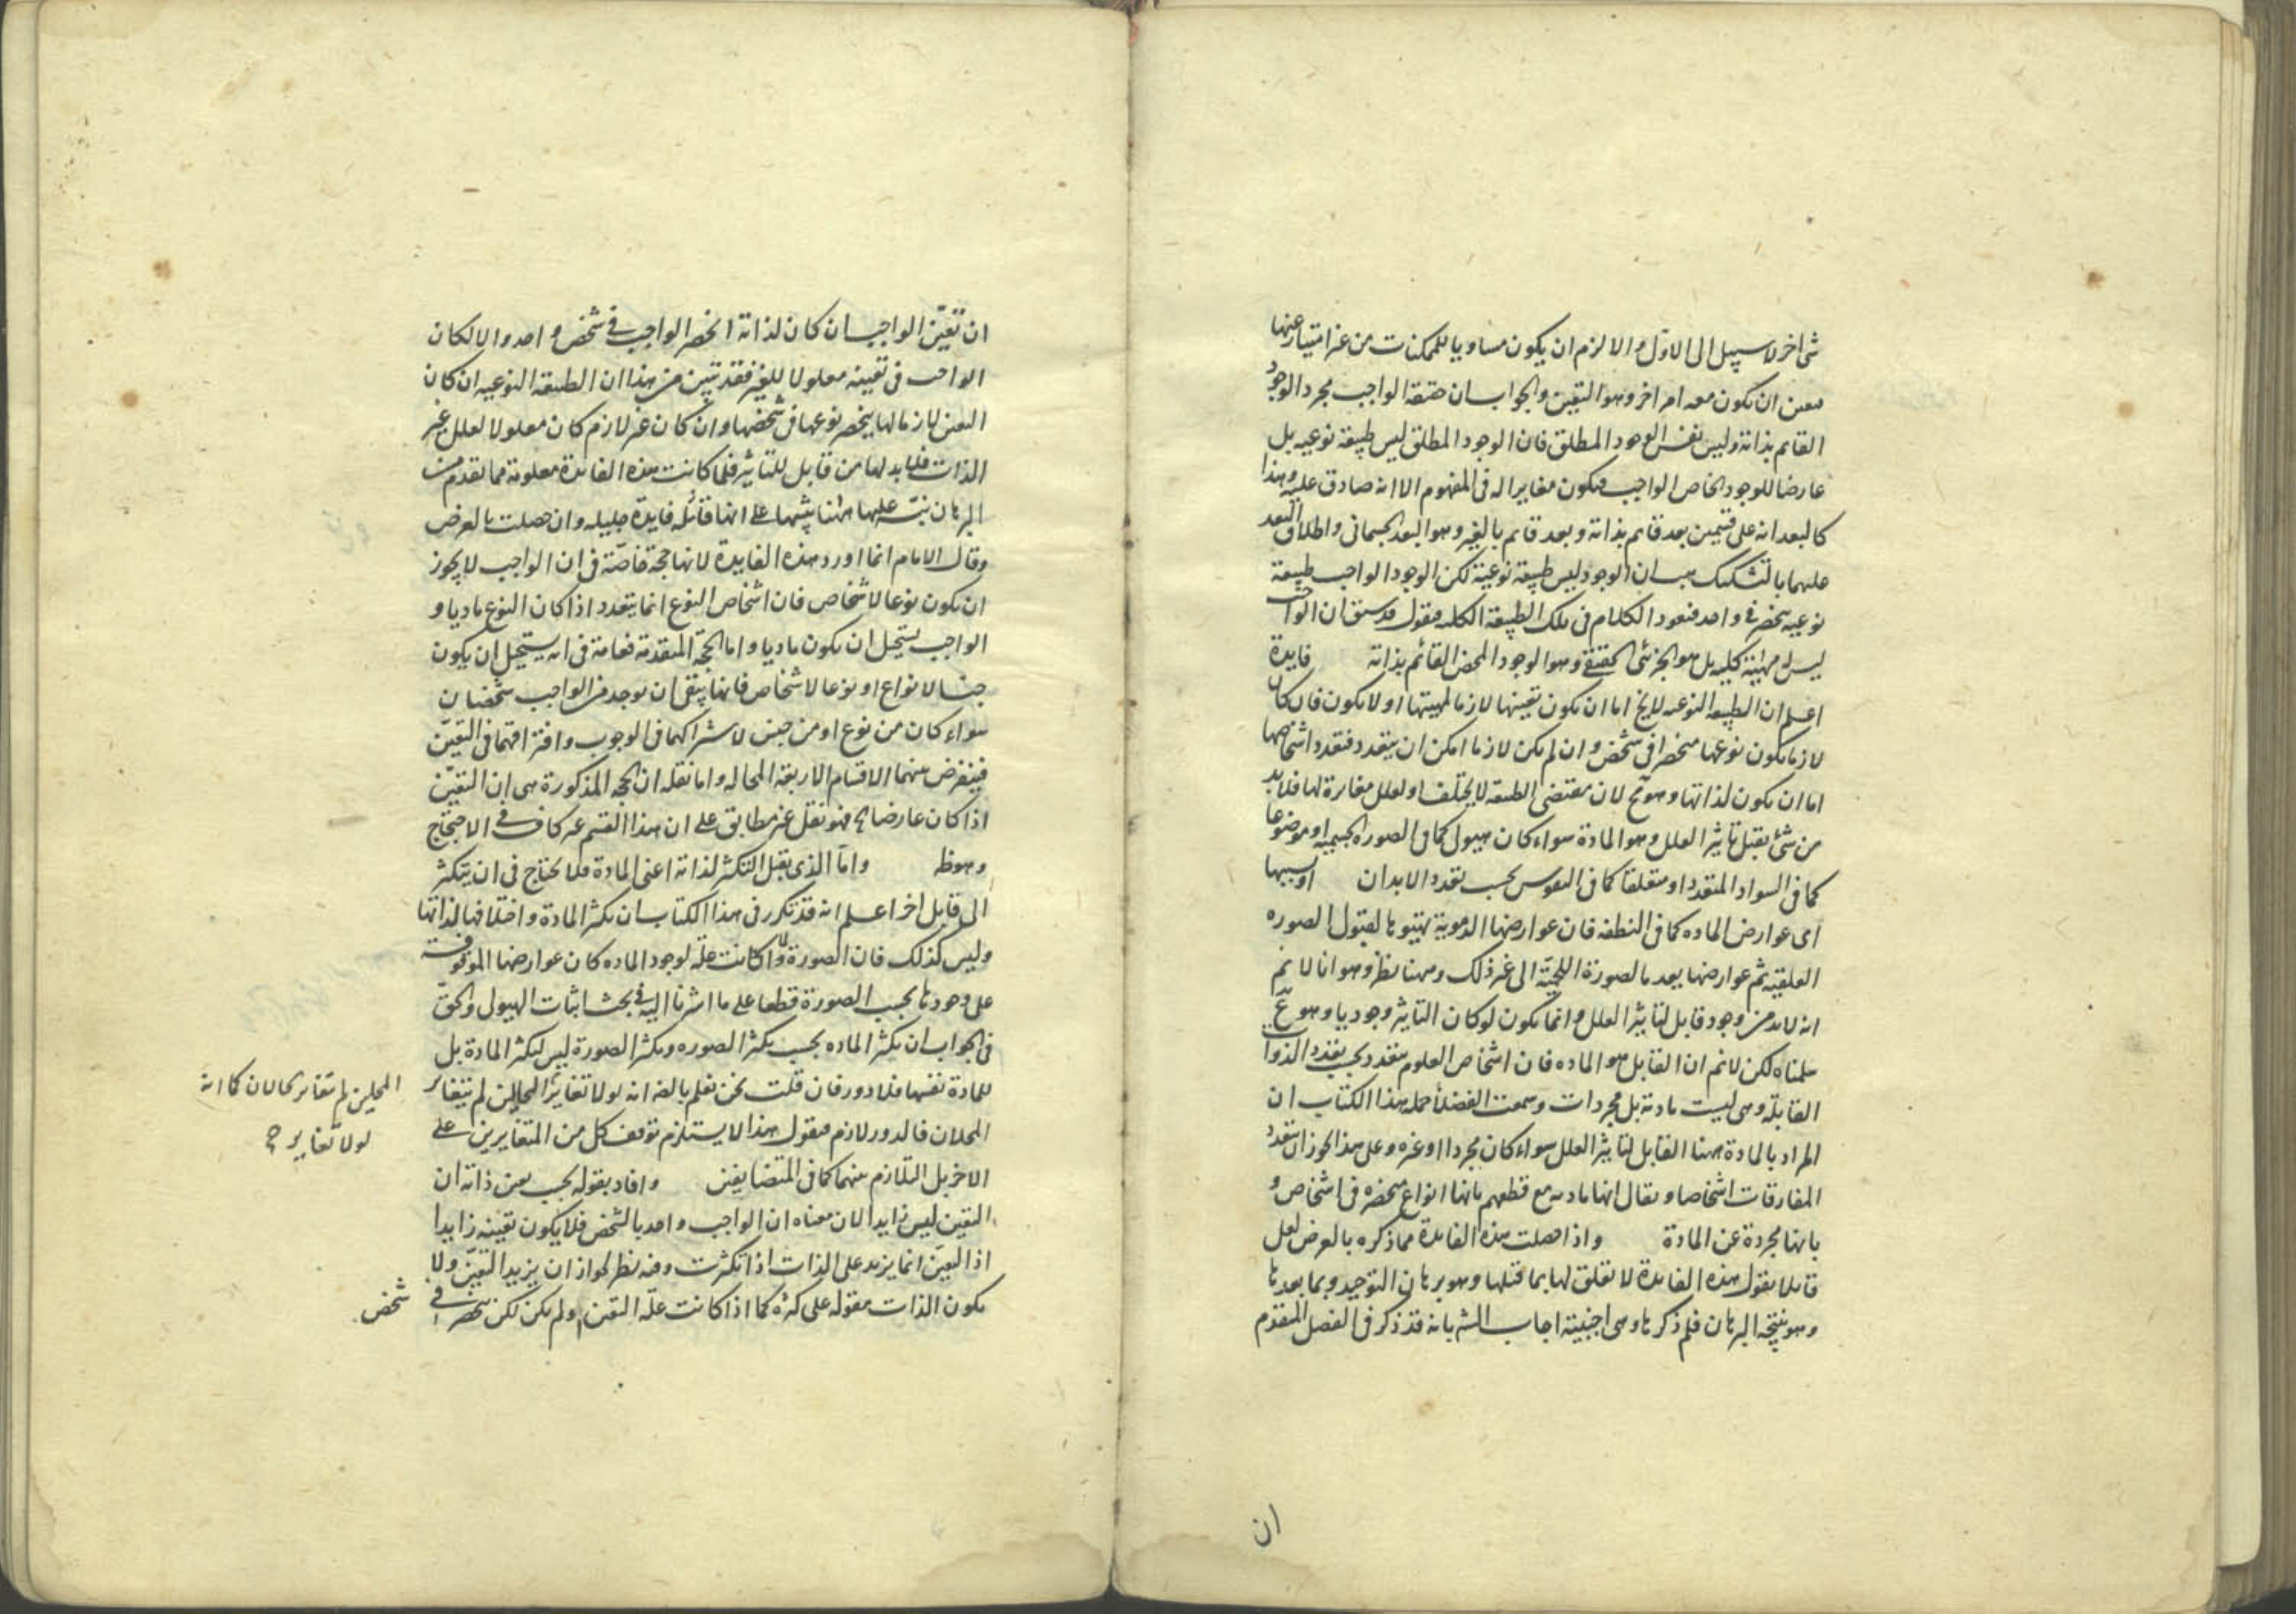 شئ اخر لا سبيل الى الاول والا لزم ان يكون مساويا للممكنات من غير امتياز عنها
فتعين ان يكون معه امر اخر وهو التعين والجواب ان حقيقة الواجب مجرد الوجود
القايم بذاته وليس نفس الوجود المطلق فان الوجود المطلق ليس طبيعة نوعية بل
عارضا للوجود الخاص الواجب فيكون مغايرا له فى المفهوم الا انه صادق عليه وهذا
كالبعد انه على قسمين بعد قايم بذاته وبعد قايم بالغير وهو البعد الجسمانى واطلاق البعد
عليهما بالتشكيك هب ان الوجود ليس طبيعة نوعية لكن الوجود الواجب طبيعة
نوعيه ينحصر فى واحد فنعود الكلام فى تلك الطبيعة الكليه فنقول قد سبق ان الواجب
ليس له مهية كليه بل هو الجزئى الحقيقى وهو الوجود المحض القائم بذاته فايدة
اعلم ان الطبيعه النوعيه لا يخ اما ان يكون تعينها لازما لمهيتها او لا يكون فان كان
لازما يكون نوعها منحصرا فى شخص وان لم يكن لازما امكن ان يتعدد فتعدد اشخاصها
اما ان يكون لذاتها وهو مح لان مقتضى الطبيعه لا يختلف او لعلل مغايرة لها فلابد
من شئ يقبل تاثير العلل وهو المادة سواء كان هيولى كما فى الصوره الجسميه او موضوعا
كما فى السواد المتعدد او متعلقا كما فى النفوس بحسب تعدد الابدان او بسببها
اى عوارض الماده كما فى النطفه فان عوارضها الدموية تهيئوها لقبول الصوره
العلقيه ثم عوارضها بعدها لصورة اللحمية الى غير ذلك وههنا نظر وهو انا لا نم
انه لابد من وجود قابل لتاثير العلل وانما يكون لو كان التاثير وجوديا وهو مم
سلمناه لكن لا نم ان القابل هو الماده فان اشخاص العلوم متعدد بحسب تعدد الذوات
القابلة وهى ليست ماديه بل مجردات وسمعت الفضلا حمله هذا الكتاب ان
المراد بالمادة ههنا القابل لتاثير العلل سواء كان مجردا او غيره وعلى هذا يجوز ان يتعدد
المفارقات اشخاصا ويقال انها ماديه مع قطعهم بانها انواع منحصره فى اشخاص و
بانها مجردة عن المادة واذا حصلت هذه الفايدة مما ذكره بالعرض لعل
قايلا يقول هذه الفايدة لا تعلق لها بما قبلها وهو برهان التوحيد وبما بعدها
وهو نتيجة البرهان فلم ذكرها وهى اجنبية اجاب الش بانه قد ذكر فى الفصل المتقدم
ان
ان تعيّن الواجب ان كان لذاته انحصر الواجب فى شخص واحد والا لكان
الواجب فى تعينه معلولا للغير فقد تبين من هذا ان الطبيعه النوعيه ان كان
التعين لازما لها ينحصر نوعها فى شخصها وان كان غير لازم كان معلولا لعلل غير
الذات فلابد لها من قابل للتاثير فلما كانت هذه الفايدة معلومة مما تقدم من
البرهان نبّه عليها ههنا تنبيها على انها فايدة جليله وان حصلت بالعرض
وقال الامام انما اورد هذه الفايدة لانها حجة خاصّة فى ان الواجب لا يجوز
ان يكون نوعا لاشخاص فان اشخاص النوع انما يتعدد اذا كان النوع ماديا و
الواجب يستحيل ان يكون ماديا واما الحجّة المتقدمة فعامة فى انه يستحيل ان يكون
جنسا لانواع او نوعا لاشخاص فانها ينفى ان يوجد من الواجب شخصان
سواء كان من نوع او من جنس لاشتراكهما فى الوجوب وافتراقهما فى التعيّن
فينفرض بينهما الاقسام الاربعة المحاله واما نقله ان الحجه المذكورة هى ان التعيّن
اذا كان عارضا فهو نقل غير مطابق على ان هذا القسم غير كاف فى الاحتجاج
وهو ظ واما الذى يقبل التكثر لذاته اعنى المادة فلا يحتاج فى ان يتكثر
الى قابل اخر اعلم انه قد تكرر فى هذا الكتاب ان تكثر المادة واختلافها لذاتها
وليس كذلك فان الصورة لما كانت علّة لوجود الماده كان عوارضها الموقوفة
على وجودها بحسب الصورة قطعا على ما اشرنا اليه فى بحث اثبات الهيولى والحق
فى الجواب ان تكثر الماده بحسب تكثر الصوره وتكثر الصورة ليس لتكثر المادة بل
للمادة نفسها فلا دور فان قلت نحن نعلم بالضه انه لولا تغاير المحلين لم يتغاير
المحلان فالدور لازم فنقول هذا لا يستلزم توقف كل من المتغايرين على
الاخر بل التلازم بينهما كما فى المتضايفين وافاد بقوله بحسب تعين ذاته ان
التعين ليس زايدا لان معناه ان الواجب واحد بالشخص فلا يكون تعينه زايدا
اذ التعيّن انما يزيد على الذات اذا تكثرت وفيه نظر لجواز ان يزيد التعيّن ولا
يكون الذات مقوله على كثره كما اذا كانت علّة التعين ولم يكن لكن ينحصر فى شخص
المحلين لم يتغاير الحالان كما انه
لولا تغاير